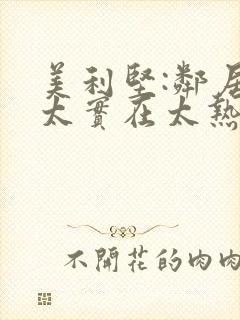 美利堅:鄰居
太實在太熱
不開花的肉肉